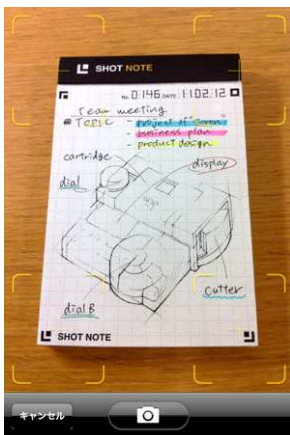 SHOT NOTE
No. 0146 DATE : 11.02.12
Team meeting
TOPIC - project of
- business plan
- product design
cartridge
display
dial
cutter
dial B
SHOT NOTE
キャンセル